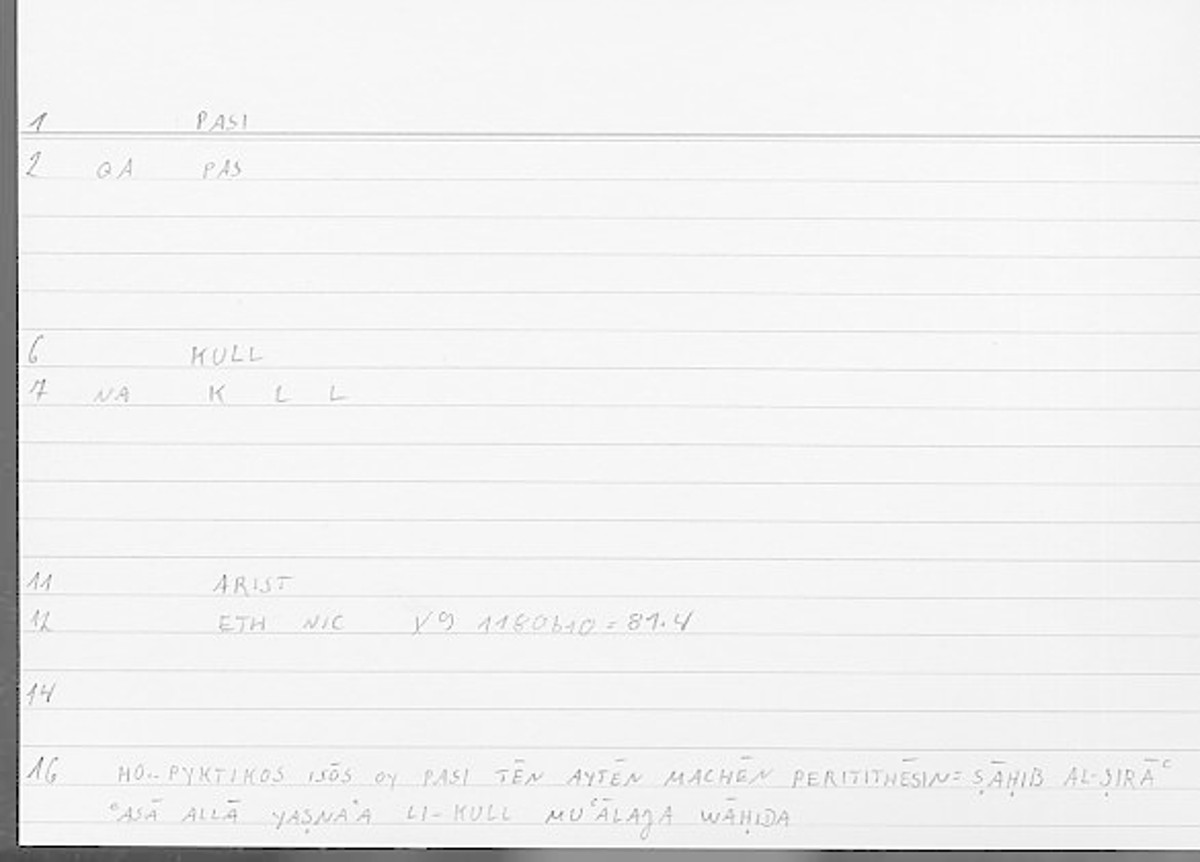 1 PASI
2 QA PAS
6 KULL
7 NA K L L
11 ARIST
12 ETH NIC X9 1180b10 = 81.4
14
16 HO.. PYKTIKOS ISŌS OY PASI TĒN AYTĒN MACHĒN PERITITHĒSIN = ṢĀḤIB AL-ṢIRĀʿ
ʿASĀ ALLĀ YAṢNAʿA LI-KULL MUʿĀLAJA WĀḤIDA